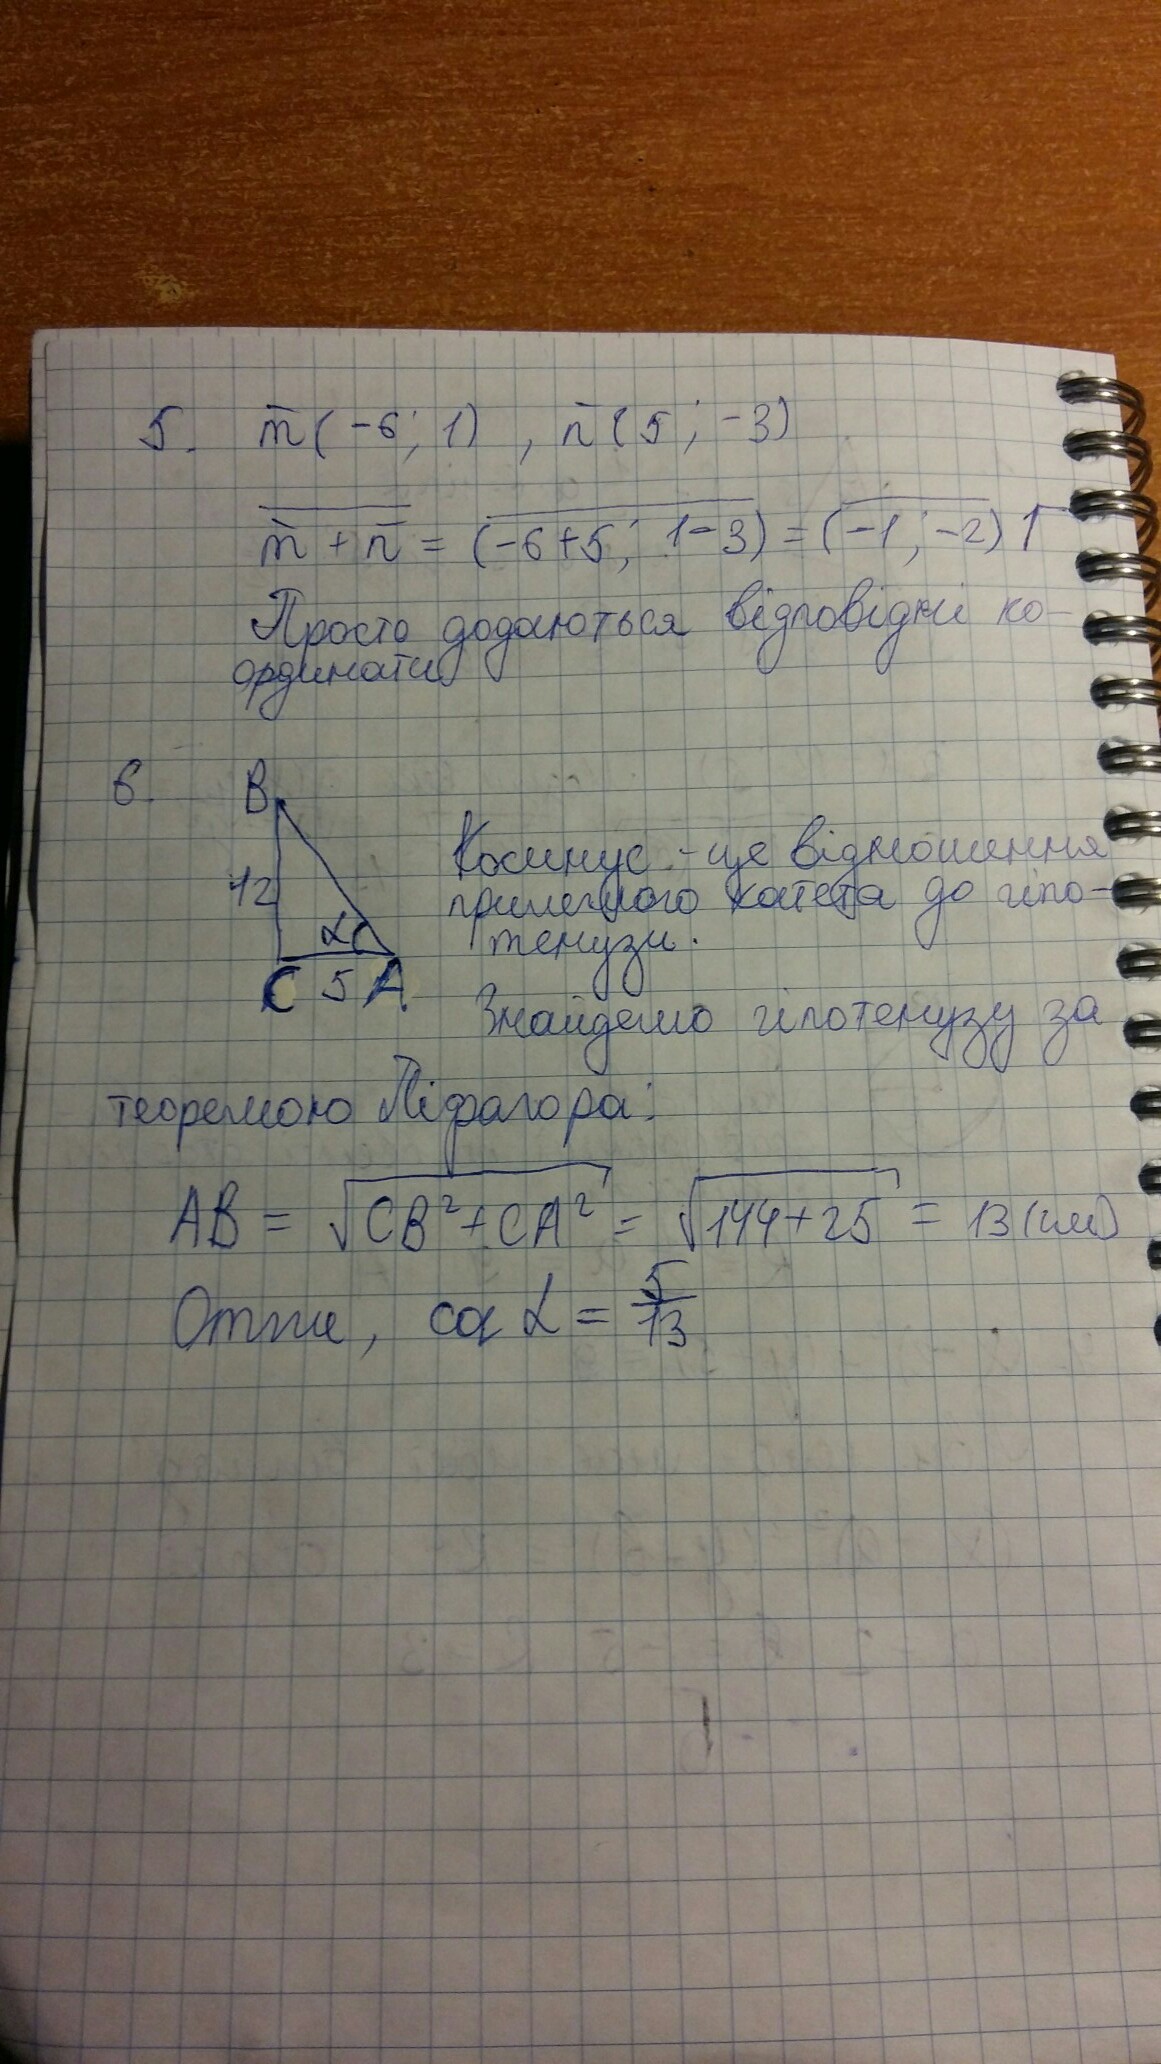 5. m̄(-6; 1), n̄(5; -3)
m̄ + n̄ = (-6+5; 1-3) = (-1; -2)
Просто додаються відповідні ко-
ординати
6. B
12
α
C 5 A
Косинус - це відношення
прилеглого катета до гіпо-
тенузи.
Знайдемо гіпотенузу за
теоремою Піфагора:
AB = √CB²+CA² = √144+25 = 13 (см)
Отже, cos α = 5/13